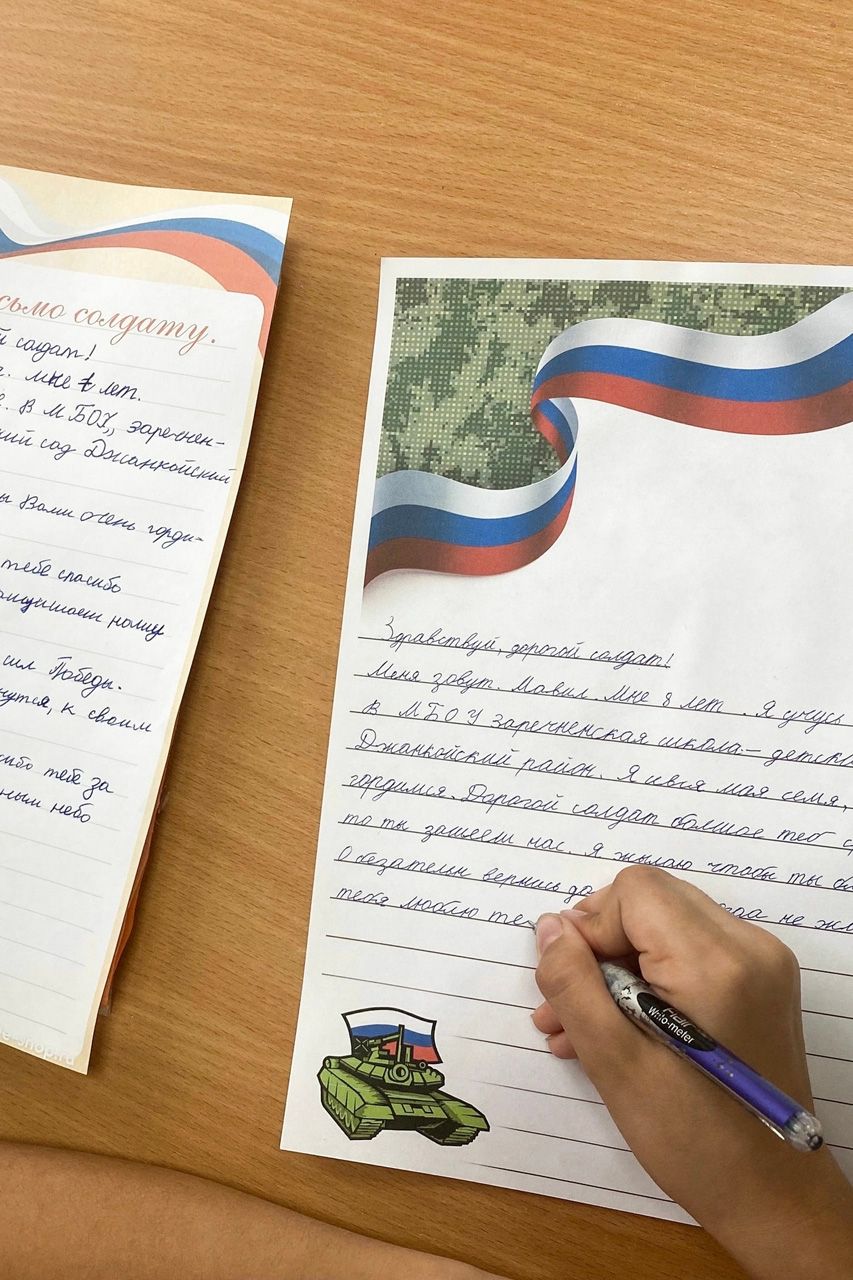 сьмо солдату.
й солдат!
мне 7 лет.
В МБОУ, заречнен-
кий сад Джанкойский
ы Вами очень горди-
тебе спасибо
ащищаеш нашу
сил Победы.
нутся, к своим
сибо тебе за
ным небо
e-shop.ru
Здравствуй, дорогой солдат!
Меня зовут. Мне 8 лет. Я учусь
В МБОУ зареченская школа- детски
Джанкойский район. Я и вся мая семя,
гордимся. Дорогой солдат болшое теб с
то ты зашееш нас. я жылаю чтобы ты бы
Обезательн вернись до не жы
тебя люблю те
Hair
Writo-meter